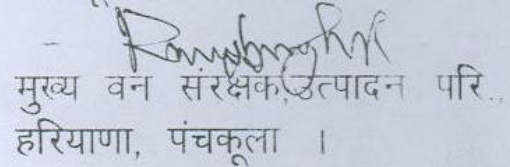 मुख्य वन संरक्षक,उत्पादन परि..
हरियाणा, पंचकूला ।